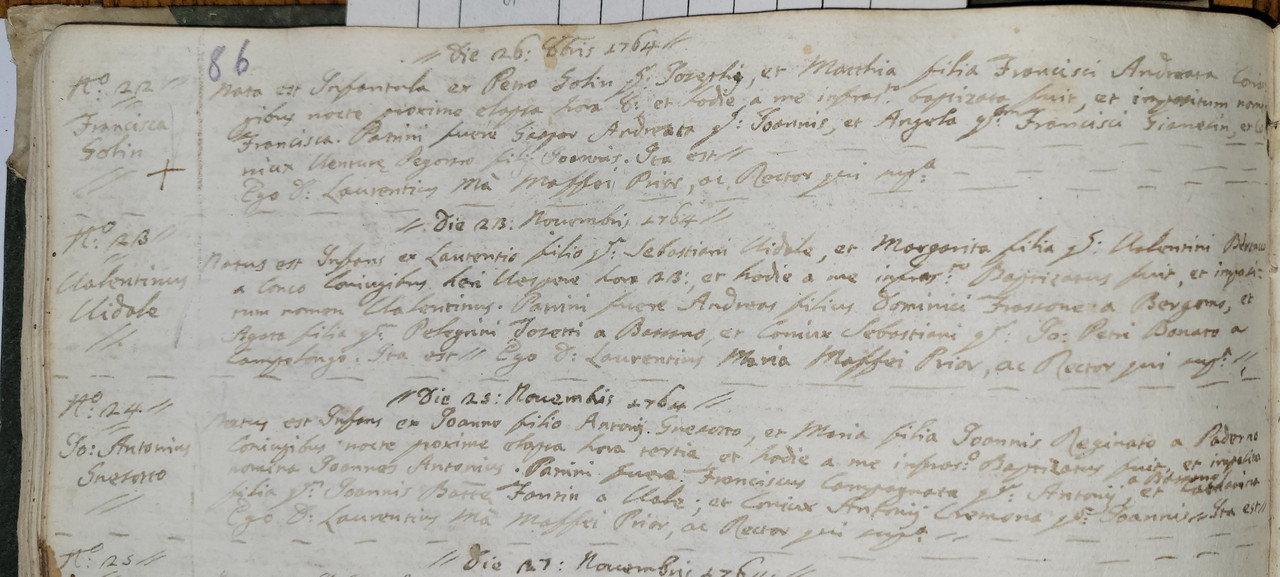 86
// Die 26: 8bris 1764 //
N.o 22 //
Francisca
Golin
Nata est Infantula ex Petro Golin q.m Josephi, et Macthia filia Francisci Andreata
gibus nocte proxime elapsa hora 6: et hodie a me infras.to baptizata fuit, et impositum nomen
Francisca. Patrini fuere Gaspar Andreata q.m Joannis, et Angela q.m Francisci Gianesin, et
niux Venturę Pegorin filij Joannis. Ita est //
Ego D: Laurentius M.a Maffei Prior, ac Rector qui sup.a
// Die 23: Novembris 1764 //
N.o 23
Valentinus
Vidale
Natus est Infans ex Laurentio filio q.m Sebastiani Vidale, et Margarita filia q.m Valentini
a Conco Coniugibus heri Vespere hora 23:, et hodie a me infras.to Baptizatus fuit, et imposi-
tum nomen Valentinus. Patrini fuere Andreas filius Dominici Frasconera Bergomo, et
Agata filia q.m Pelegrini Jozetti a Bassano, et Coniux Sebastiani q.m Jo: Petri Bonato a
Campolongo. Ita est // Ego D: Laurentius Maria Maffei Prior, ac Rector qui sup.a //
// Die 25: Novembis 1764 //
N.o 24 //
Jo: Antonius
Guesotto
Natus est Infans ex Joanne filio Antonij Guesotto, et Maria filia Joannis Reginato a Paderno
Coniugibus nocte proxime elapsa hora tertia et hodie a me infras.o Baptizatus fuit, et imposita
nomina Joannes Antonius. Patrini fuere Franciscus Compagnata q.m Antonij a Bassano, et Catharina
filia q.m Joannis Batte Fantin a Valle; et Coniux Antonij Cremona q.m Joannis // Ita est //
Ego D: Laurentius M.a Maffei Prior, ac Rector qui sup.a
N.o 25 //
// Die 27: Novembris 1764 //